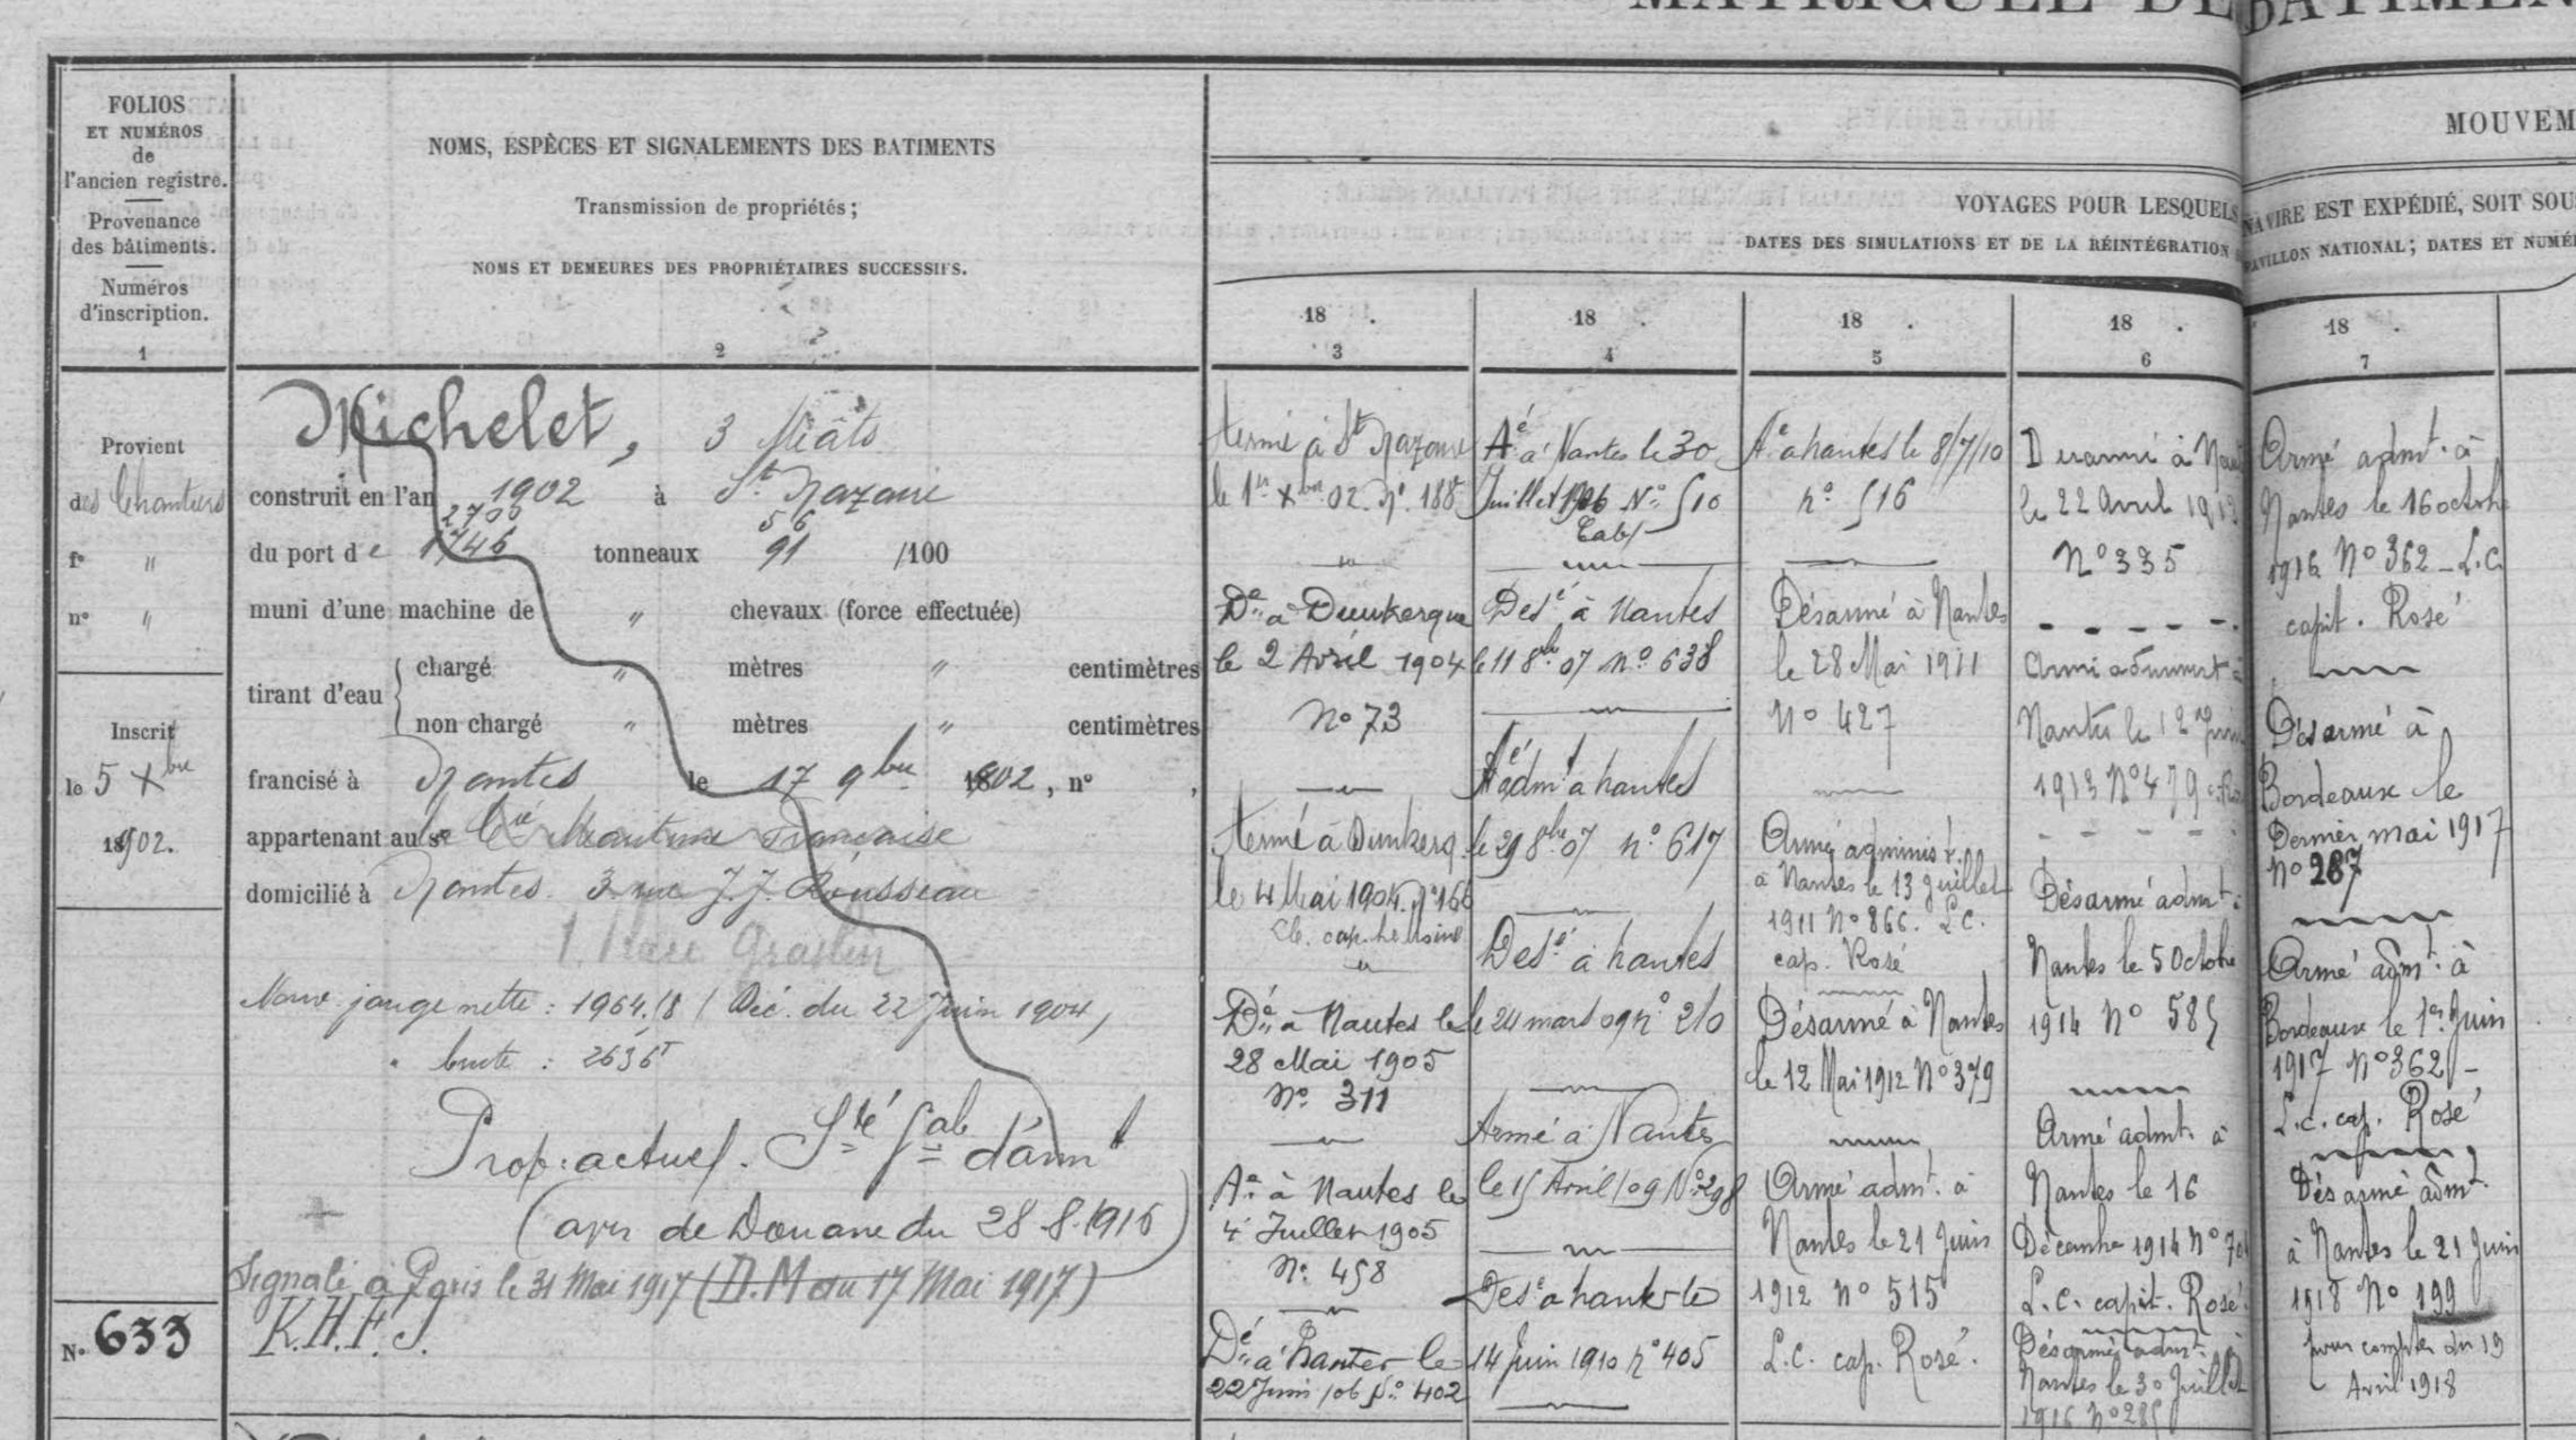 MATRICULE DE BATIMEN
FOLIOS
ET NUMÉROS
de
l'ancien registre.
Provenance
des bâtiments.
Numéros
d'inscription.
1
NOMS, ESPÈCES ET SIGNALEMENTS DES BATIMENTS
Transmission de propriétés;
NOMS ET DEMEURES DES PROPRIÉTAIRES SUCCESSIFS.
2
MOUVEM
VOYAGES POUR LESQUELS NAVIRE EST EXPÉDIÉ, SOIT SOUS
DATES DES SIMULATIONS ET DE LA RÉINTÉGRATION PAVILLON NATIONAL; DATES ET NUMÉ
18 .
3
18 .
4
18 .
5
18 .
6
18 .
7
Provient
des Chantiers
f° "
n° "
Inscrit
le 5 Xbre
1902.
N° 633
Michelet, 3 Mâts
construit en l'an 1902 à St Nazaire
2700 56
du port de 1746 tonneaux 91 /100
muni d'une machine de " chevaux (force effectuée)
tirant d'eau
chargé " mètres " centimètres
non chargé " mètres " centimètres
francisé à Nantes le 17 9bre 1902, n° ,
appartenant au sr la Cie Maritime Française
domicilié à Nantes 3 rue J.J. Rousseau
1. Place Graslin
Nouv. jauge nette : 1964.18 (Déc. du 22 Juin 1904)
" brute : 2636T
Prop. actuel. Sté Gale d'armt
(avis de Douane du 28-8-1916)
Signalé à Paris le 31 Mai 1917 (D.M du 17 Mai 1917)
K.H.F.J.
Armé à St Nazaire
le 1er Xbre 02. N° 188
Dé à Dunkerque
le 2 Avril 1904
N° 73
Armé à Dunkerq.
le 4 Mai 1904. N° 166
Dé à Nantes le
28 Mai 1905
N° 311
Aé à Nantes le
4 Juillet 1905
N° 458
Dé à Nantes le
22 Juin 06 N° 402
Aé à Nantes le 30
Juillet 1906 N° 510
Cab
Desé à Nantes
le 11 8bre 07 N° 638
Aé admt à Nantes
le 29 8bre 07 n° 617
Desé à Nantes
le 24 mars 09 n° 210
Armé à Nantes
le 15 Avril 09 N° 298
Desé à Nantes le
14 Juin 1910 n° 405
Aé à Nantes le 8/7/10
n° 516
Désarmé à Nantes
le 28 Mai 1911
N° 427
Armé administ.
à Nantes le 13 Juillet
1911 N° 866. L.C.
cap. Rosé
Désarmé à Nantes
le 12 Mai 1912 N° 379
Armé admt. à
Nantes le 21 Juin
1912 N° 515
L.C. cap. Rosé.
Desarmé à
le 22 Avril
N° 335
Armé
Nantes le 12 Juin
1913 N° 479
Désarmé admt à
Nantes le 5 Octobre
1914 N° 585
Armé admt. à
Nantes le 16
Décembre 1914 N°
L.C. capit. Rosé.
Désarmé admt. à
Nantes le 30 Juillet
1916 N° 285
Armé admt. à
Nantes le 16 octobre
1916 N° 362 - L.C.
capit. Rosé
Désarmé à
Bordeaux le
Dernier mai 1917
N° 287
Armé admt. à
Bordeaux le 1er Juin
1917 N° 362 -
L.C. cap. Rosé
Désarmé admt.
à Nantes le 21 Juin
1918 N° 199
pour compter du 19
Avril 1918